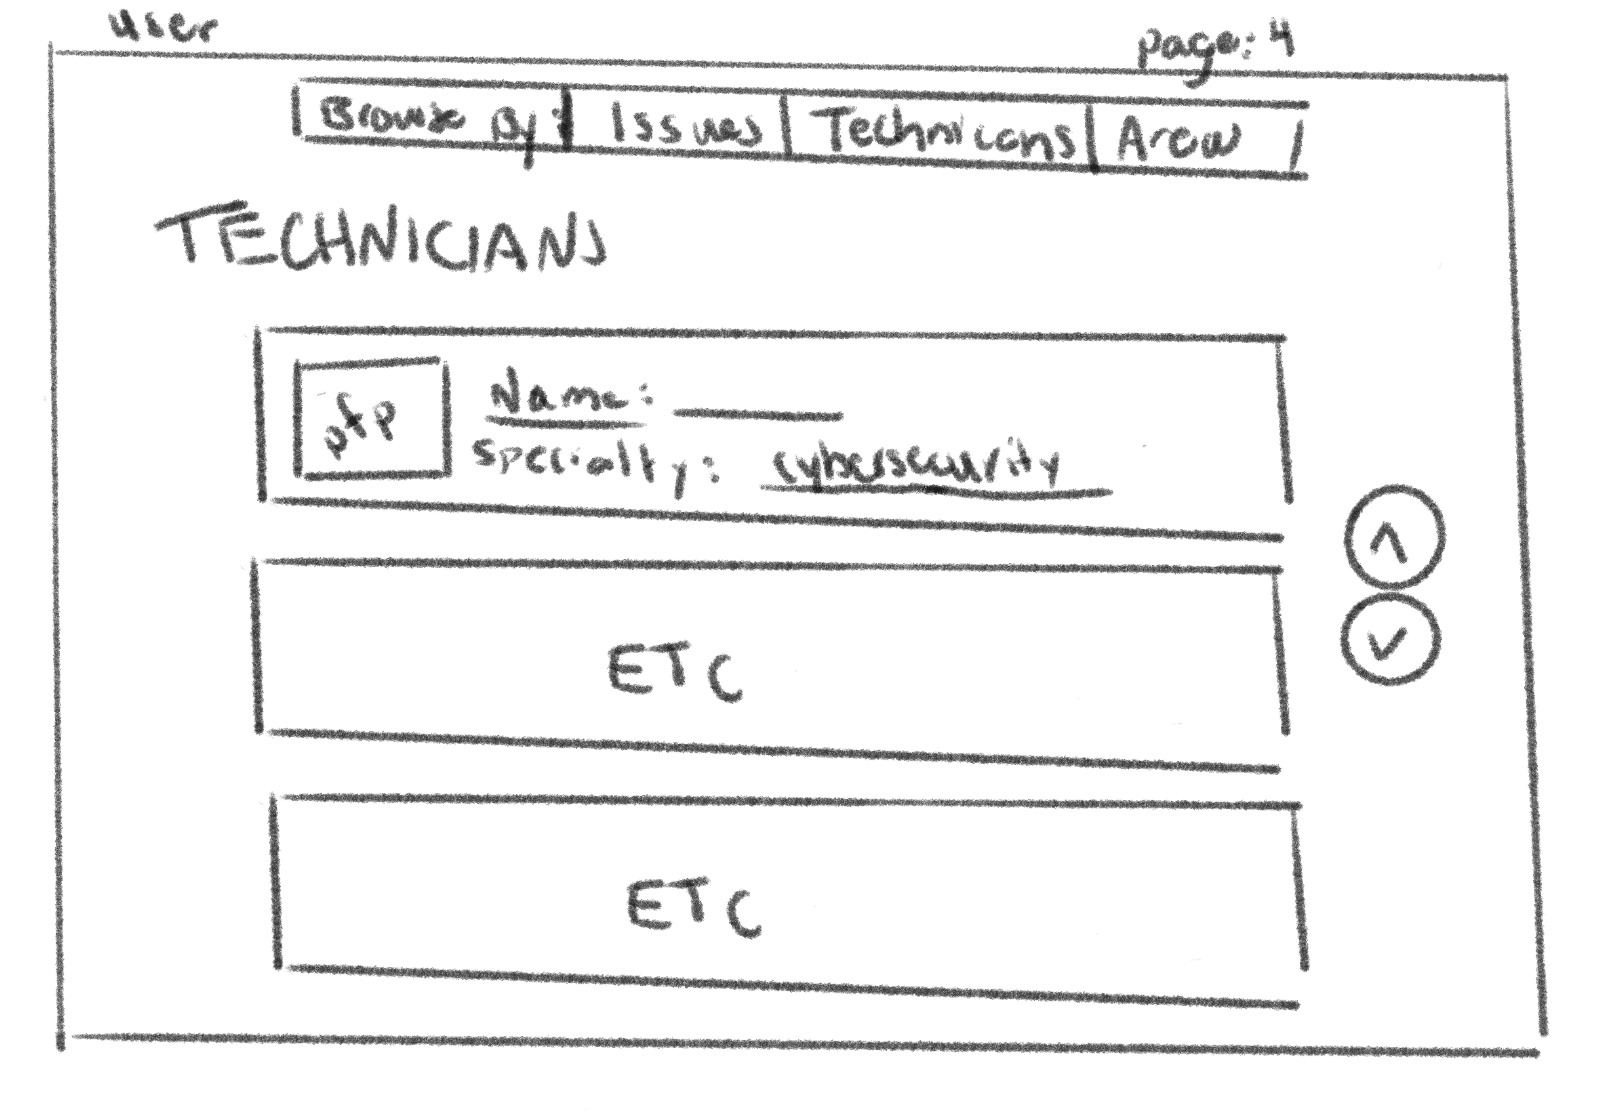 user
page: 4
Browse By: Issues Technicans Area
TECHNICIANS
pfp
Name:
Specialty: cybersecurity
ETC
ETC